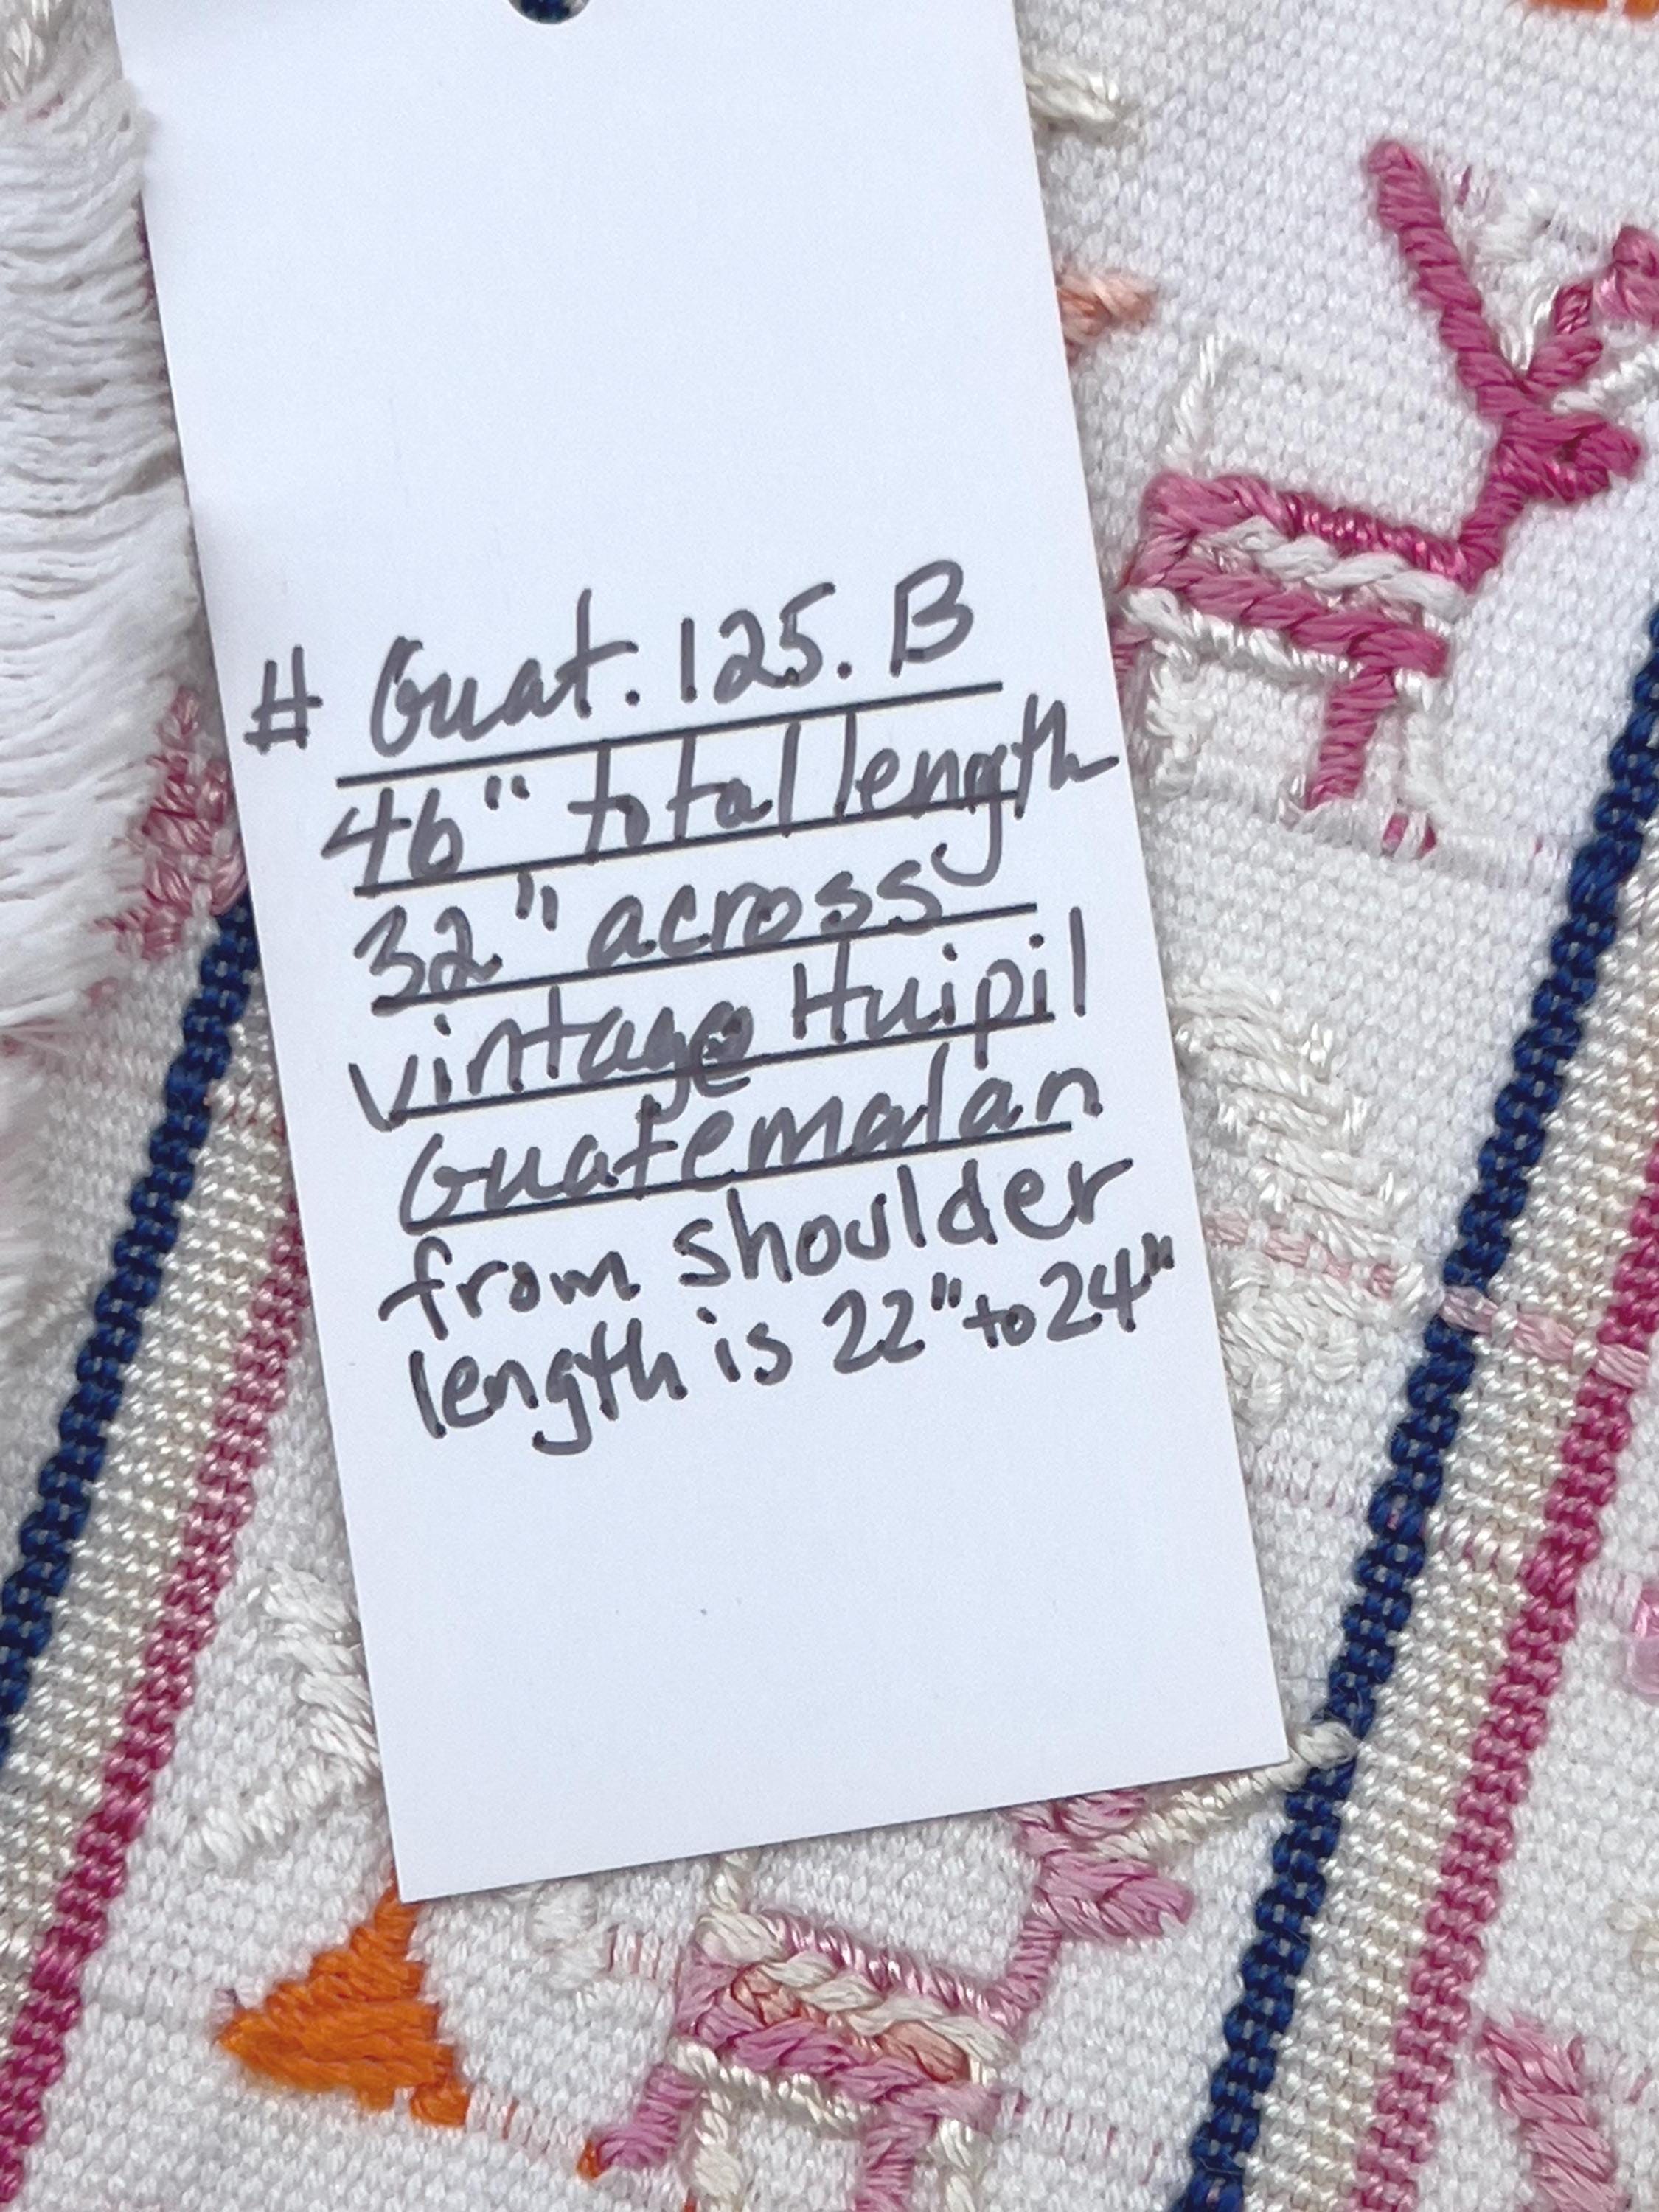 # Guat. 125. B
46" total length
32" across
vintage Huipil
Guatemalan
from shoulder
length is 22" to 24"